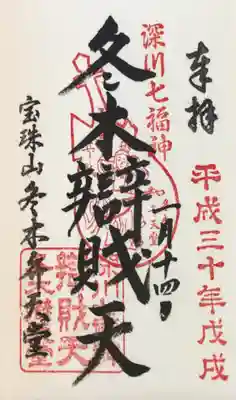 奉拝
平成三十年戊戌
深川七福神
一月十四日
冬木辯財天
宝珠山冬木弁天堂